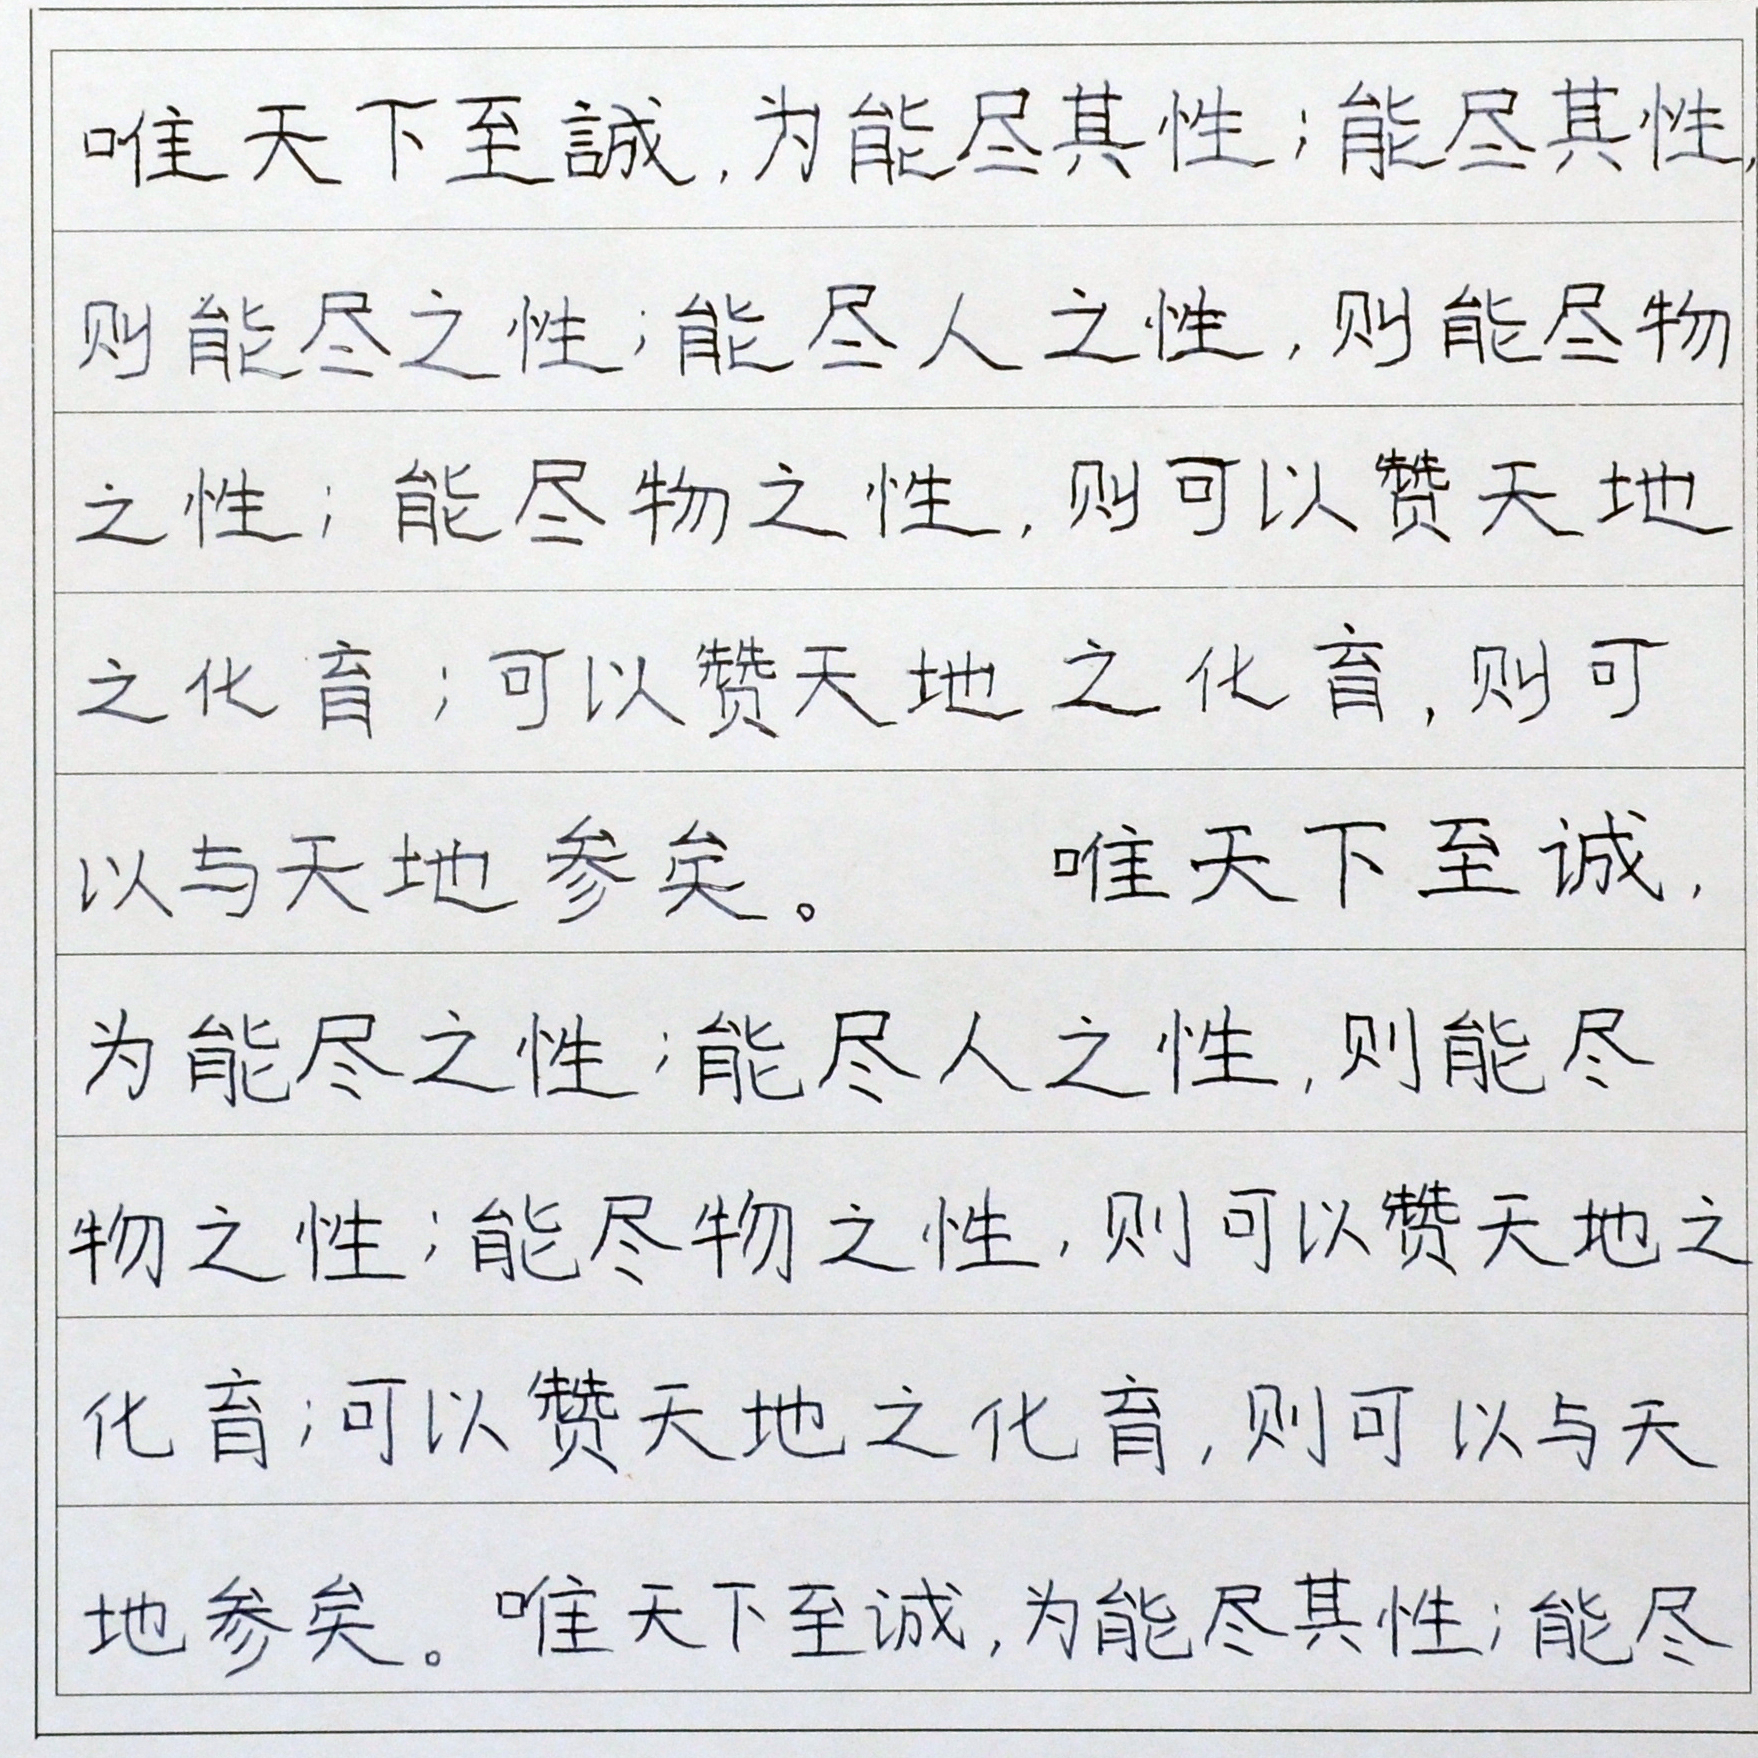 唯天下至誠,为能尽其性;能尽其性,
则能尽之性;能尽人之性,则能尽物
之性;能尽物之性,则可以赞天地
之化育;可以赞天地之化育,则可
以与天地参矣。 唯天下至诚,
为能尽之性;能尽人之性,则能尽
物之性;能尽物之性,则可以赞天地之
化育;可以赞天地之化育,则可以与天
地参矣。唯天下至诚,为能尽其性;能尽